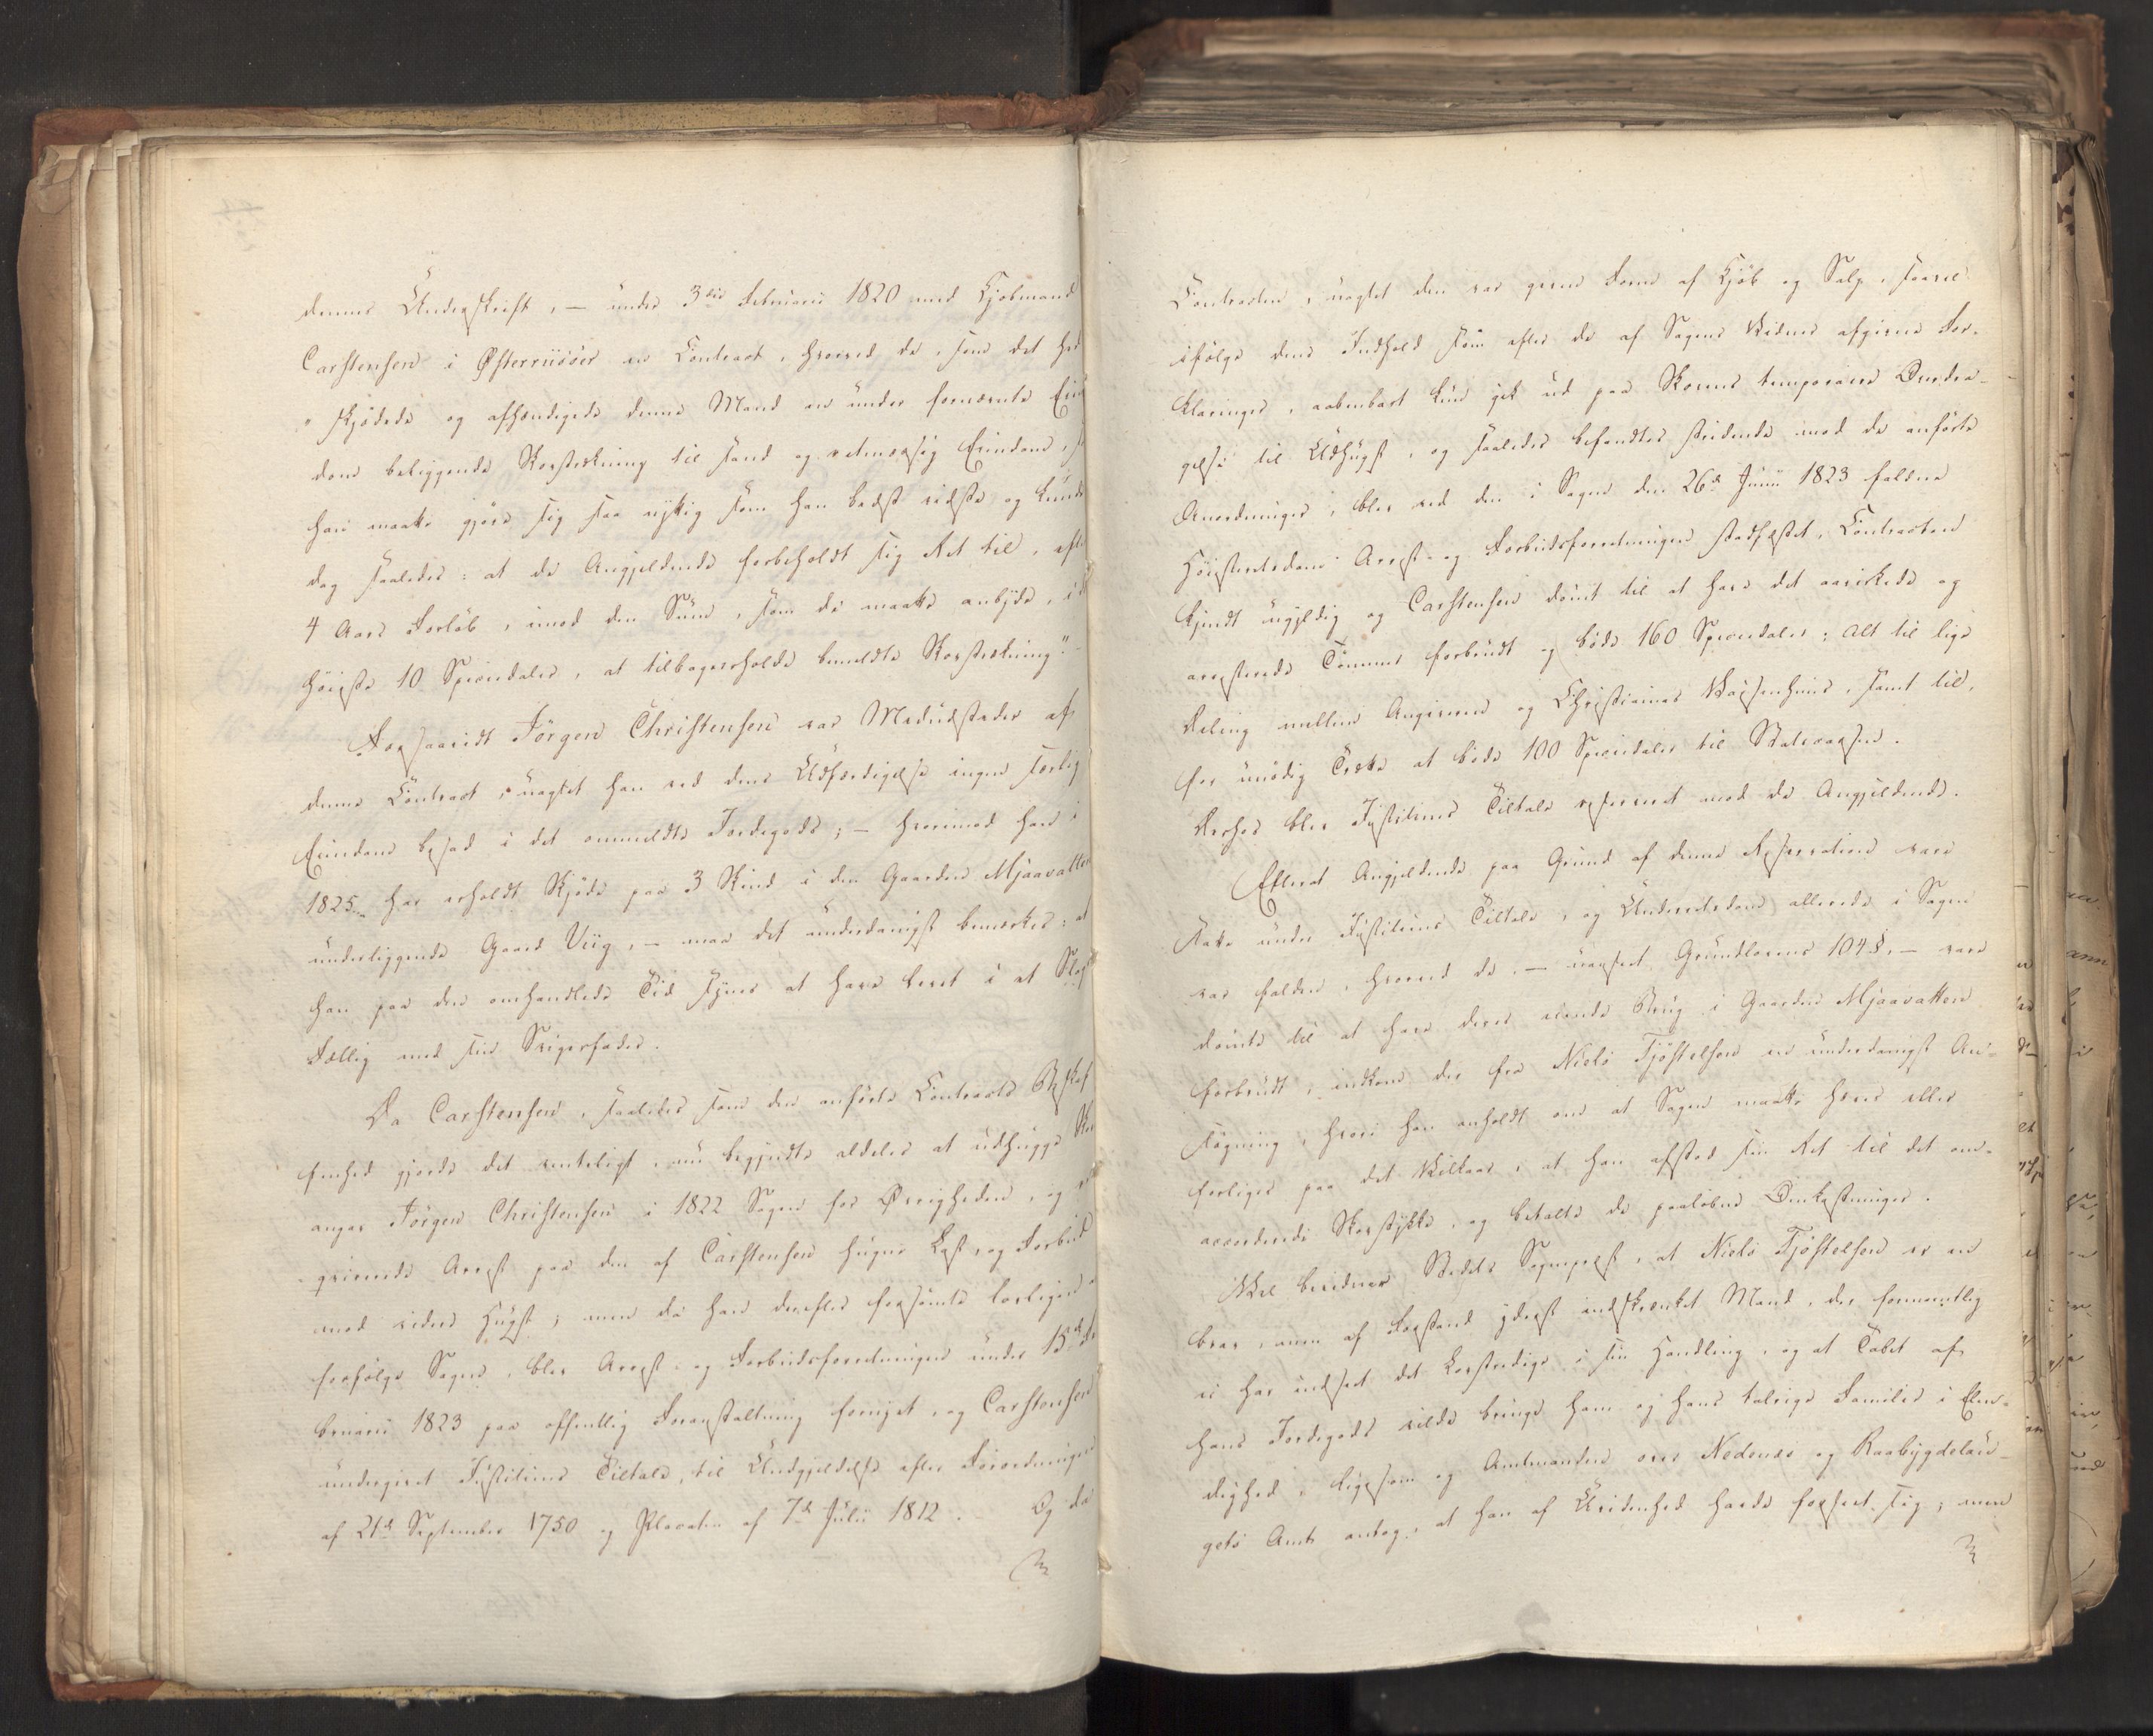 dennes Underskrift, — under 3die Februarii 1820 med Kjøbmand
Carstensen i Østerriisöer en Contract, hvorved de, som det hed
"skjødede og afhændigede denne Mand en under fornævnte Eien
dom beliggende Skovstrækning til sand og retmæssig Eiendom, so
han maatte gjøre sig saa nyttig som han bedst vidste og kunde
dog saaledes: at de Angjeldende forbeholdt sig Ret til, efter
4 Aars Forløb, imod den Sum, som de maatte anbyde, i d
høieste 10 Speciedaler, at tilbageerholde bemeldte Skovstrækning."
Forsaavidt Jörgen Christensen var Medudsteder af
denne Contract, uagtet han ved dens Udfærdigelse ingen særlig
Eiendom besad i det ommeldte Jordegods; — hvorimod han i
1825 har erholdt Skjøde paa 3 Skind i den Gaarden Mjaavatten
underliggende Gaard Viig, — maa det underdanigst bemærkes: at
han paa den omhandlede Tid synes at have været i et Slags
Fællig med sin Svigerfader.
Da Carstensen, saaledes som den anførte Contracts Beskaf
fenhed gjorde det venteligt, nu begyndte aldeles at udhugge Sko
angav Jörgen Christensen i 1822 Sagen for Øvrigheden, og
qvirerede Arrest paa den af Carstensen hugne Last, og Forbud
mod videre Hugst; men da han derefter forsømte lovligen a
forfølge Sagen, blev Arrest- og Forbudsforretningen under 15de Fe
bruarii 1823 paa offentlig Foranstaltning fornyet, og Carstensen
undergivet Justitiens Tiltale, til Undgjeldelse efter Forordningen
af 21de September 1750 og Placaten af 7de Julii 1812. Og da
Contracten, uagtet den var given Form af Kjøb og Salg, saavel
ifølge dens Indhold som efter de af Sagens Vidner afgivne For-
klaringer, aabenbart kun gik ud paa Skovens temporaire Overdra-
gelse til Udhugst, og saaledes befandtes stridende mod de anførte
Anordninger, blev ved den i Sagen den 26de Junii 1823 faldne
Høiesteretsdom Arrest- og Forbudsforretningen stadfæstet, Contracten
kjendt ugyldig og Carstensen dömt til at have det aavirkede og
arresterede Tømmer forbrudt og bøde 160 Speciedaler: alt til lige
Deling mellem Angiveren og Christianias Vaisenhuus, samt til,
for unødig Trætte at bøde 100 Speciedaler til Statscassen.
Derhos blev Justitiens Tiltale reserveret mod de Angjeldende.
Efterat Angjeldende paa Grund af denne Reservation vare
satte under Justitiens Tiltale, og Underretsdom allerede i Sagen
var falden, hvorved de, — uanseet Grundlovens 104 §, — vare
dømte til at have deres eiende Brug i Gaarden Mjaavatten
forbrudt, indkom der fra Niels Tjöstelsen en underdanigst An-
søgning, hvori han anholdt om at Sagen maatte hæves eller
forliges paa det Vilkaar, at han afstod sin Ret til det om-
accorderede Skovstykke, og betalte de paaløbne Omkostninger.
Vel bevidner Stedets Sognepræst, at Niels Tjöstelsen er en
brav, men af Forstand yderst indskrænket Mand, der formeentlig
ei har indseet det Lovstridige i sin Handling, og at Tabet af
hans Jordegods vilde bringe ham og hans talrige Familie i Elen-
dighed, ligesom og Amtmanden over Nedenæs og Raabygdelau-
gets Amt antog, at han af Uvidenhed havde forseet sig; men